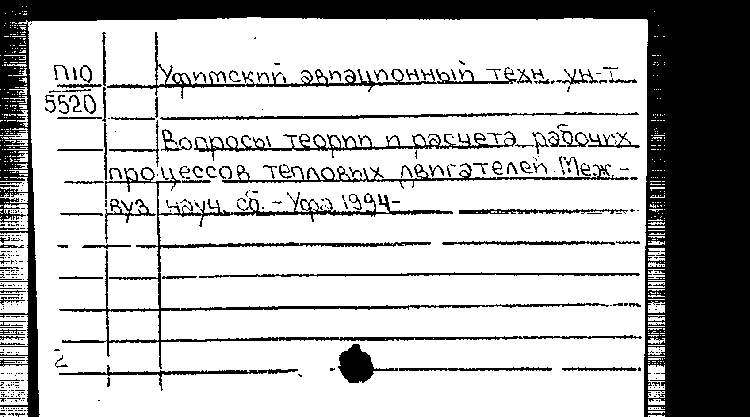 П10 Уфимский авиационный техн. ун-т
5520
Вопросы теории и расчета рабочих
процессов тепловых двигателей. Меж-
вуз. науч. сб. - Уфа 1994-